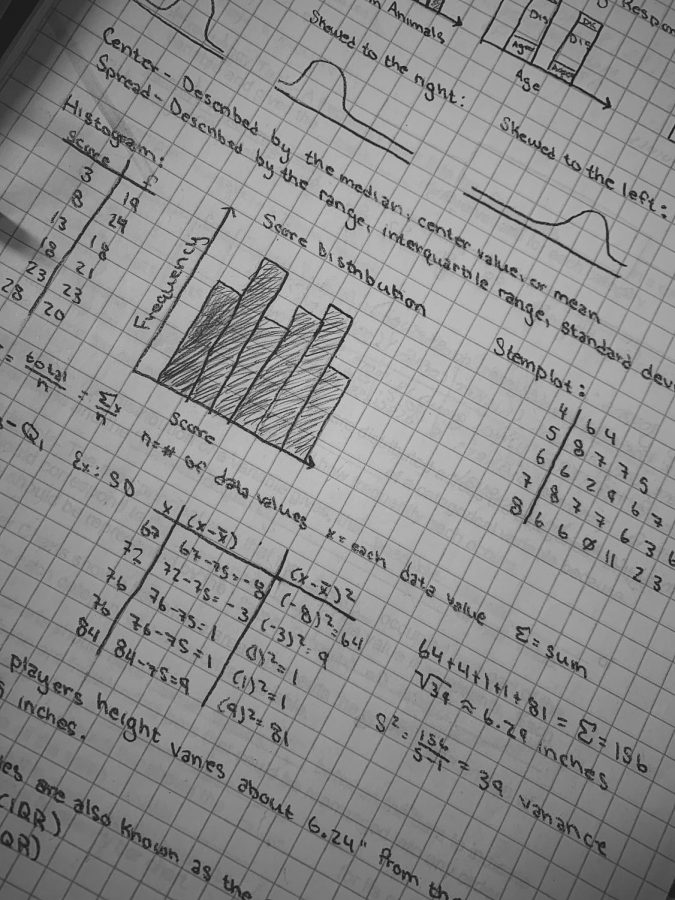 in Animals
Respon
Dis
Age
Age
Skewed to the right:
Skewed to the left:
Center - Described by the median, center value, or mean
Spread - Described by the range, interquartile range, standard dev
Histogram:
Score f
3 19
8 24
13 18
18 21
23 23
28 20
Score Distribution
Frequency
Score
Stemplot:
4 6 4
5 8 7 7 5
6 6 2 9 6 7
7 8 7 7 6 3 6
8 6 6 0 11 2 3
= total/n = Σx/n
- Q1
n = # of data values x = each data value Σ = sum
Ex: SD
x (x-x̄) (x-x̄)²
67 67-75=-8 (-8)²=64
72 72-75=-3 (-3)²=9
76 76-75=1 (1)²=1
76 76-75=1 (1)²=1
84 84-75=9 (9)²=81
64+4+1+1+81 = Σ = 156
√39 ≈ 6.24 inches
S² = 156/5-1 = 39 variance
players height varies about 6.24" from the
inches.
are also known as the
(IQR)
QR)